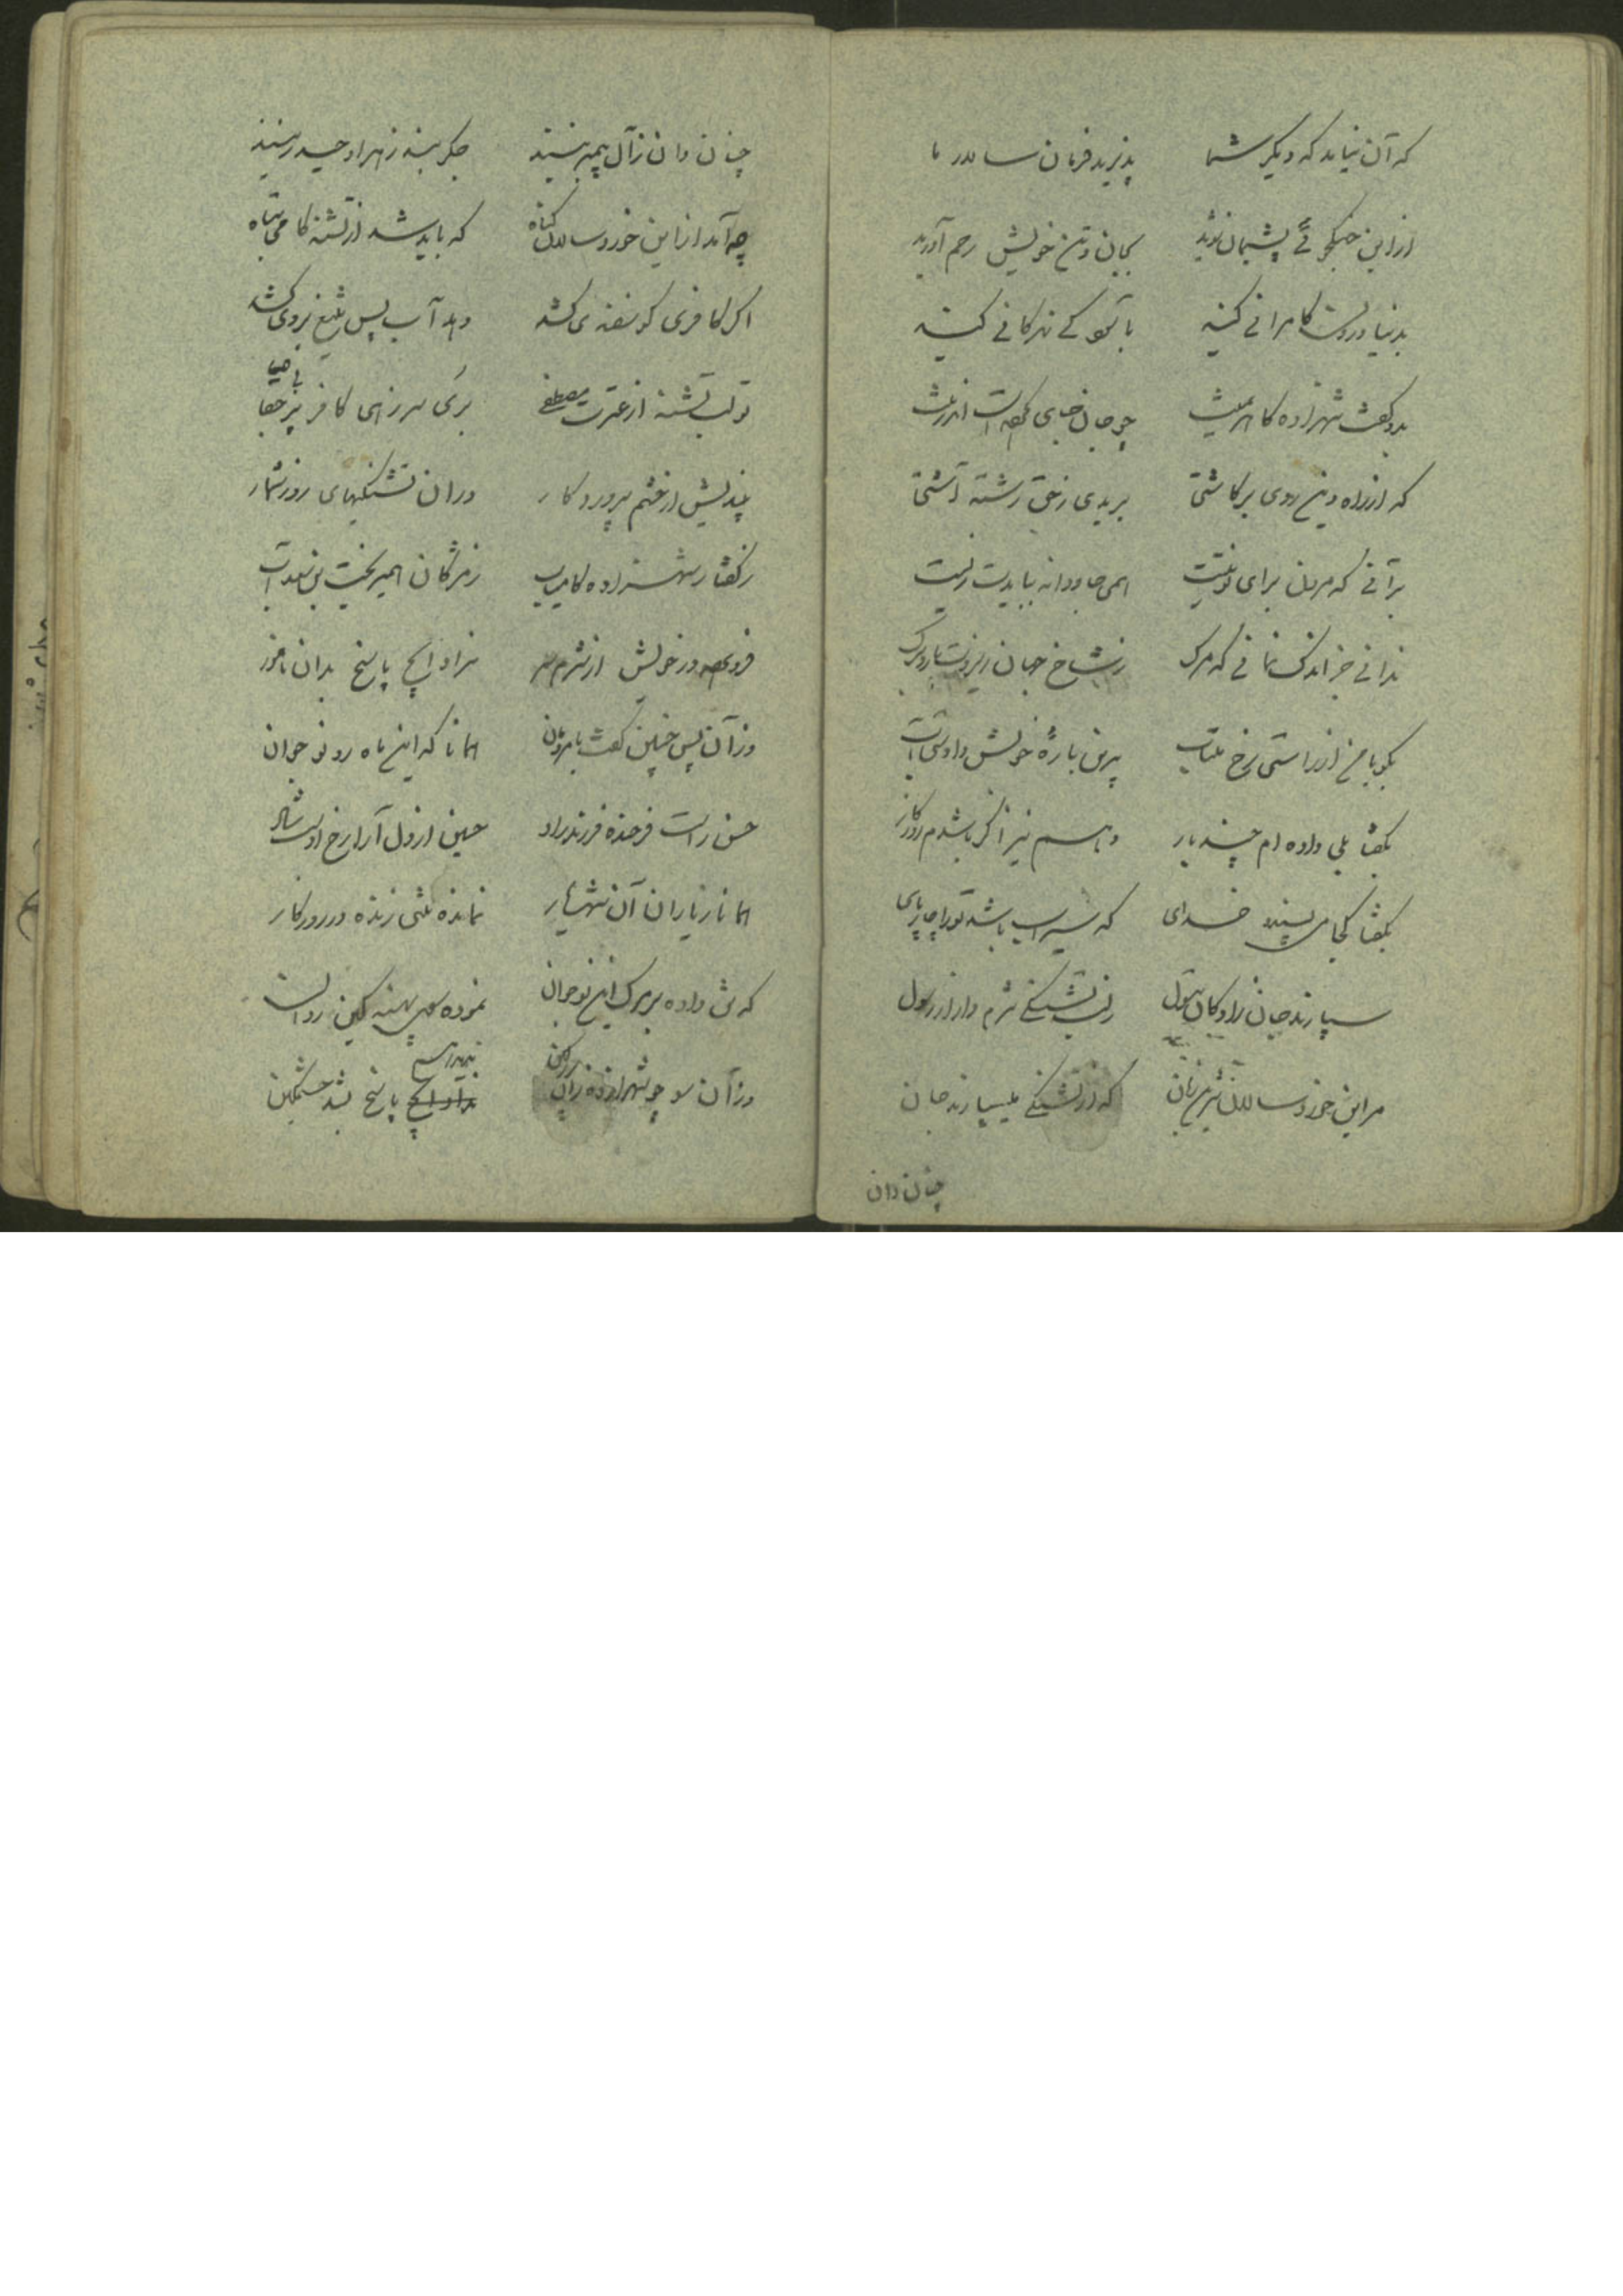 که آن نباید که دیگر شما پذیرید فرمان سالار ما
از این جنگجوئی پشیمان شوید بجان و تن خویش رحم آورید
بدنیا درون کامرانی کنید با نیکی زندگانی کنید
بدو گفت شهزاده کاهرمنت چو جان جای
که از راه دین روی برکاشتی بریدی ز حق رشته آشتی
برآنی که مردن برای تو نیست همی جاودانه ببایدت زیست
ندانی جز اندک نمانی که مرگ ز شاخ جهان ریزدت بار و برگ
بگو با من از راستی رخ متاب بدین باره خویش دادستی آب
بگفتا بلی داده ام چند بار دهم نیز اگر باشدم روزگار
بگفتا کجا می پسندد خدای که سیراب باشد تو را چارپای
سپارند جان زادگان بتول ز لب تشنگی شرم دار از رسول
مر این خورد سالان شیرین زبان که از تشنگی میسپارند جان
چنان دان
چنان دان ز آل پیمبر نیند جگر بند زهرا و حیدر نیند
چه آمد از این خورد سالان گناه که باید شد از تشنه کامی تباه
اگر کافری گوسفندی کشد دهد آب پس تیغ بر وی کشد
تو لب تشنه از عترت مصطفی بری سر زهی کافر پر جفا
بی حیا
بیندیش از خشم پروردگار در آن تشنگیهای روز شمار
ز گفتار شهزاده کامیاب ز مژگان همیریخت بن سعد آب
فرو سر خویش از شرم سر نداد ایچ پاسخ بدان نامور
وز آن پس چنین گفت با همانا که این ماه رو نوجوان
حسن راست فرخنده فرزند راد حسین از دل آرا رخ اوست شاد
همانا ز یاران آن شهریار نمانده تنی زنده در روزگار
که تن داده بر مرگ این نوجوان نموده سوی پهنه کین روان
وز آن سو چو شهزاده زان نداد ایچ پاسخ بشد خشمگین